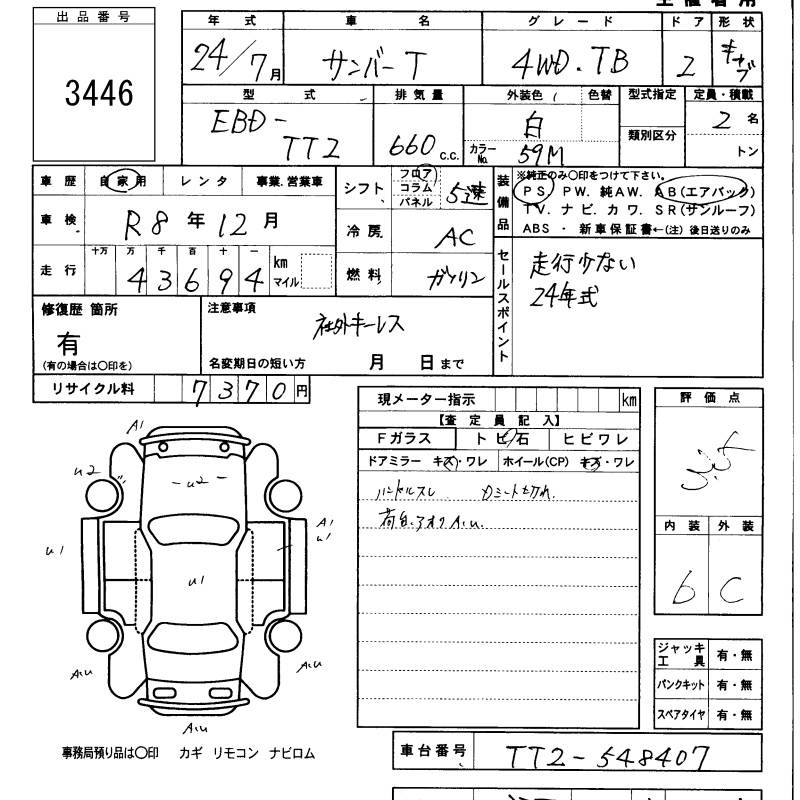 出品番号
3446
年式 車名 グレード ドア 形状
24/7月 サンバーT 4WD.TB 2 キャブ
型式 排気量 外装色 色替 型式指定 定員・積載
EBD-TT2 660c.c. 白 2名
カラーNo. 59M 類別区分 トン
車歴 自家用 レンタ 事業.営業車
車検 R8年12月
走行 十万 万 千 百 十 一
43694 km マイル
シフト フロア コラム パネル 5速
冷房 AC
燃料 ガソリン
装備品
※純正のみ〇印をつけて下さい。
PS PW.純AW. AB(エアバック)
TV.ナビ.カワ.SR(サンルーフ)
ABS・新車保証書←(注)後日送りのみ
セールスポイント
走行少ない
24年式
修復歴 箇所
有
(有の場合は〇印を)
注意事項
社外キーレス
名変期日の短い方 月 日まで
リサイクル料 7370円
現メーター指示 km
【査定員記入】
Fガラス トビ石 ヒビワレ
ドアミラー キズ・ワレ ホイール(CP) キズ・ワレ
ハンドルスレ
荷台.アオリA.U.
評価点
3.5
内装 外装
b C
A1
u2
-u2-
A1
u1
u1
u1
A.u
A.u
A.u
ジャッキ工具 有・無
パンクキット 有・無
スペアタイヤ 有・無
事務局預り品は〇印 カギ リモコン ナビロム
車台番号 TT2-548407